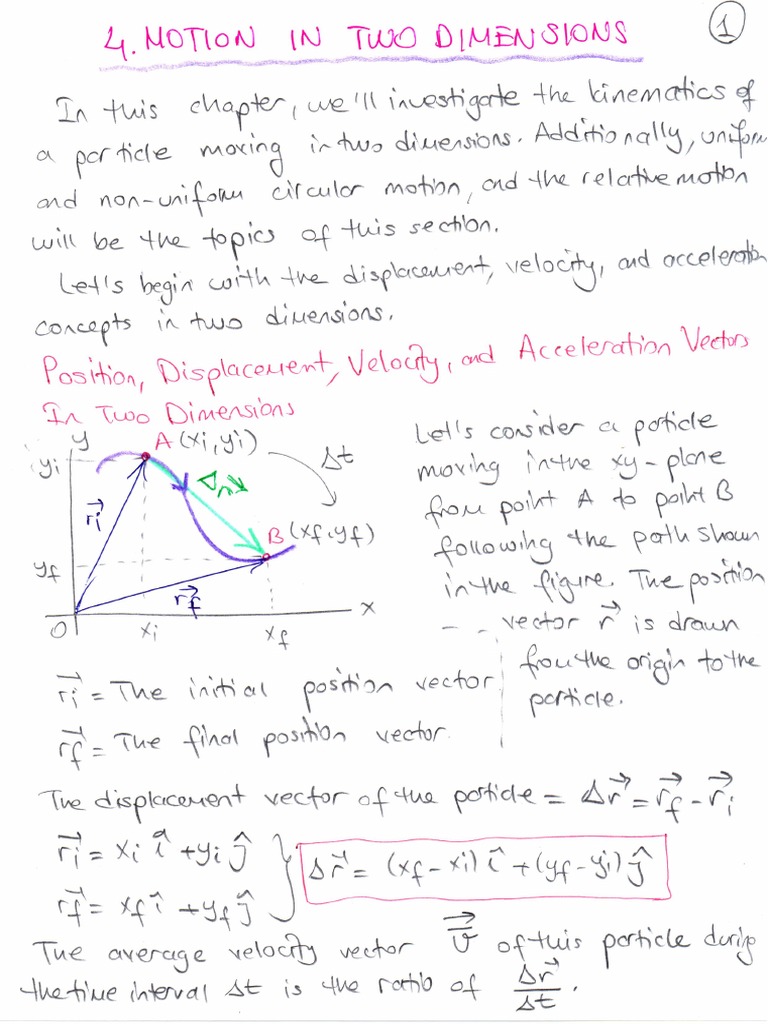 4. MOTION IN TWO DIMENSIONS
1
In this chapter, we'll investigate the kinematics of
a particle moving in two dimensions. Additionally, uniform
and non-uniform circular motion, and the relative motion
will be the topics of this section.
Let's begin with the displacement, velocity, and acceleration
concepts in two dimensions.
Position, Displacement, Velocity, and Acceleration Vectors
In Two Dimensions
y
A (xi, yi)
Δt
yi
Δr⃗
r⃗i
B (xf, yf)
yf
r⃗f
x
O
xi
xf
Let's consider a particle
moving in the xy-plane
from point A to point B
following the path shown
in the figure. The position
vector r⃗ is drawn
from the origin to the
particle.
r⃗i = The initial position vector
r⃗f = The final position vector.
The displacement vector of the particle = Δr⃗ = r⃗f - r⃗i
r⃗i = xi î + yi ĵ
r⃗f = xf î + yf ĵ
Δr⃗ = (xf - xi) î + (yf - yi) ĵ
The average velocity vector v̅⃗ of this particle during
the time interval Δt is the ratio of Δr⃗/Δt.